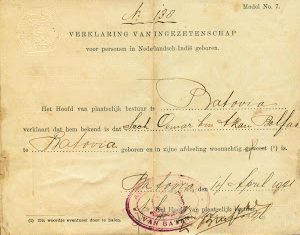 Model No. 7.
No. 130
VERKLARING VAN INGEZETENSCHAP
voor personen in Nederlandsch-Indië geboren.
Het Hoofd van plaatselijk bestuur te Batavia
verklaart dat hem bekend is dat Said Oemar bin
te Batavia geboren en in zijne afdeeling woonachtig geweest (1) is.
Batavia, den 14 April
Het Hoofd van plaatselijk bestuur,
VAN BATA
(1) Dit woordje eventueel door te halen.